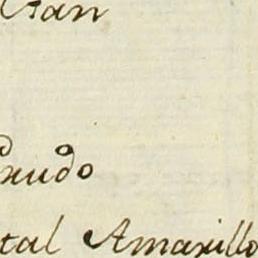 tan
xudo
tal Amarillo